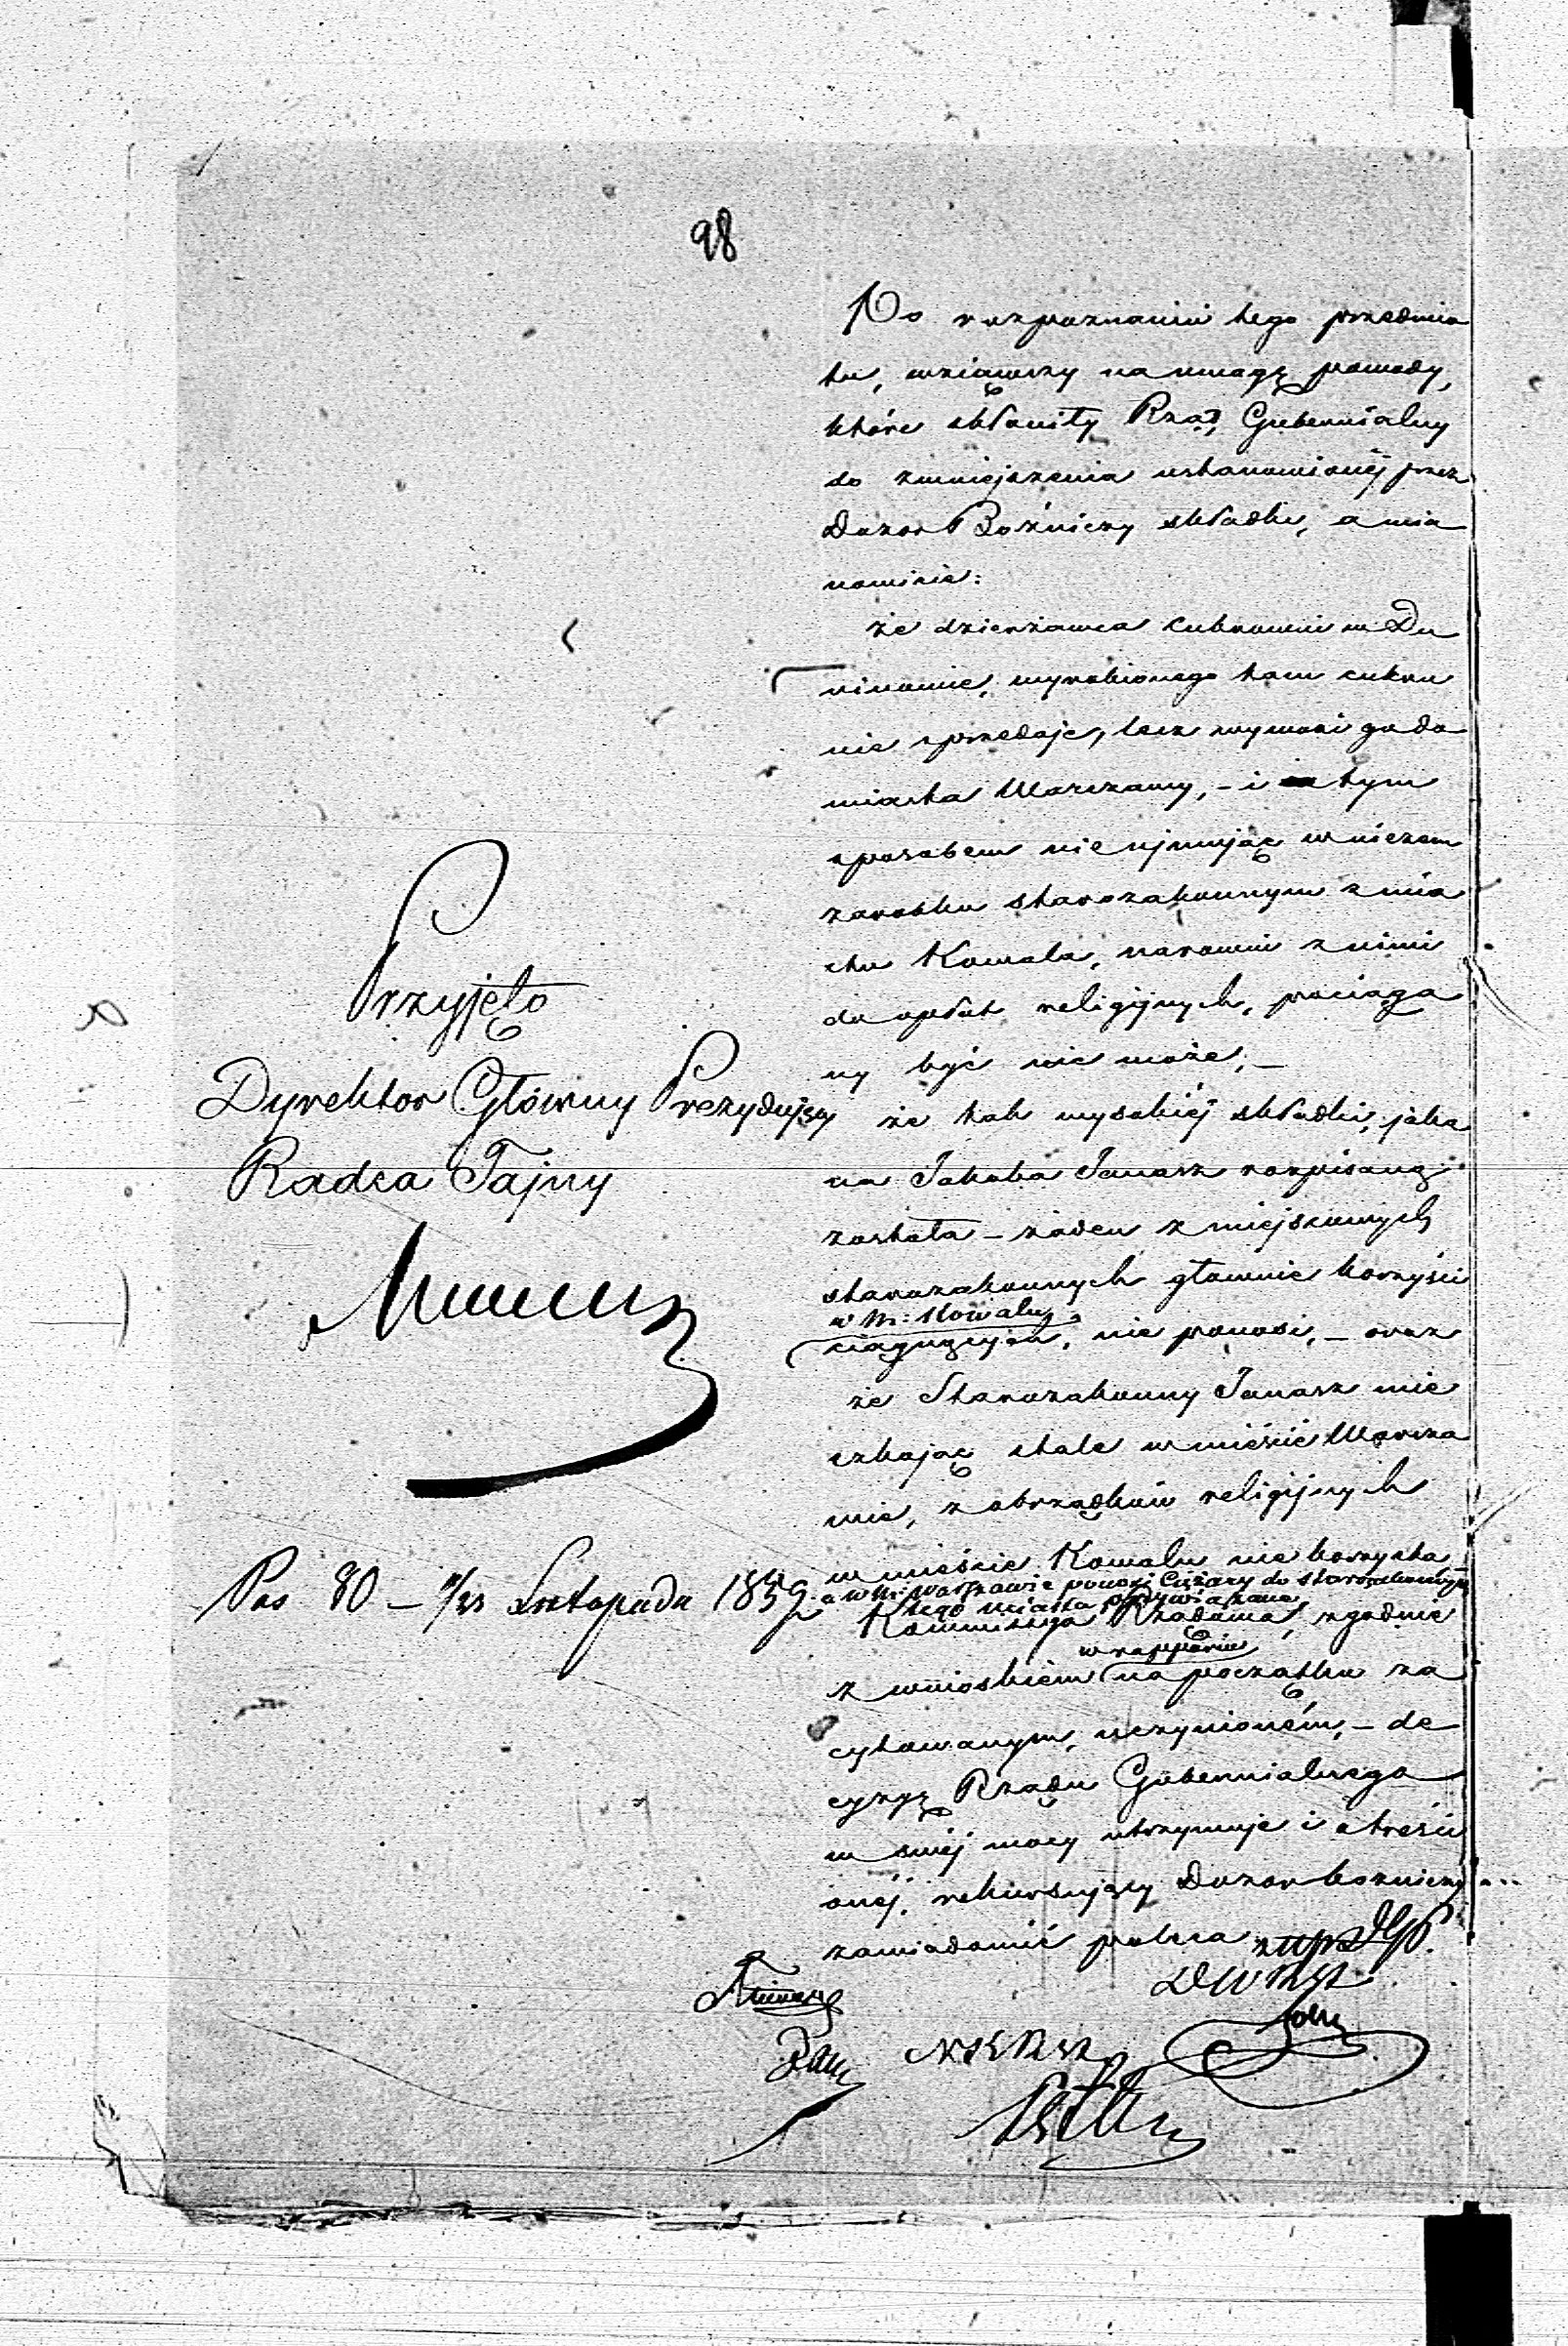 98
Po rozpoznaniu tego przedmio
tu, wziąwszy na uwagę powody,
które skłoniły Rząd Gubernialny
do zmniejszenia ustanowionéj przez
Dozor Bożniczy składki, a mia
nowicie:
że dzierżawca cukrowni w Du
ninowie, wyrobionego tam cukru
nie sprzedaje, lecz wywozi go do
miasta Warszawy, – i tym
sposobem nie ujmując w niczem
zarobku starozakonnym z mia
sta Kowala, narowni z nimi
do opłat religijnych, pociąga
ny być nie może; –
że tak wysokiéj składki, jaka
na Jakóba Janasz rozpisaną
została – żaden z miejscowych
starozakonnych głównie korzyści
w m: Kowalu
ciągnących, nie ponosi, – oraz
że Starozakonny Janasz mie
szkając stale w mieście Warsza
wie, z obrządków religijnych
w mieście Kowalu nie korzysta
a w m: Warszawie ponosi ciężary do starozakonnych
tego miasta przywiązane
Kommissya Rządowa, zgodnie
z wnioskiem w rapporcie na początku za
cytowanym, uczynioném, – de
cyzyę Rządu Gubernialnego
w swéj mocy utrzymuje i o treści
onéj, rekursujący Dozor bożniczy
zawiadomić poleca
Przyjęto
Dyrektor Główny Prezydujący
Radca Tajny
Pos 80 – 11/23 Listopada 1859